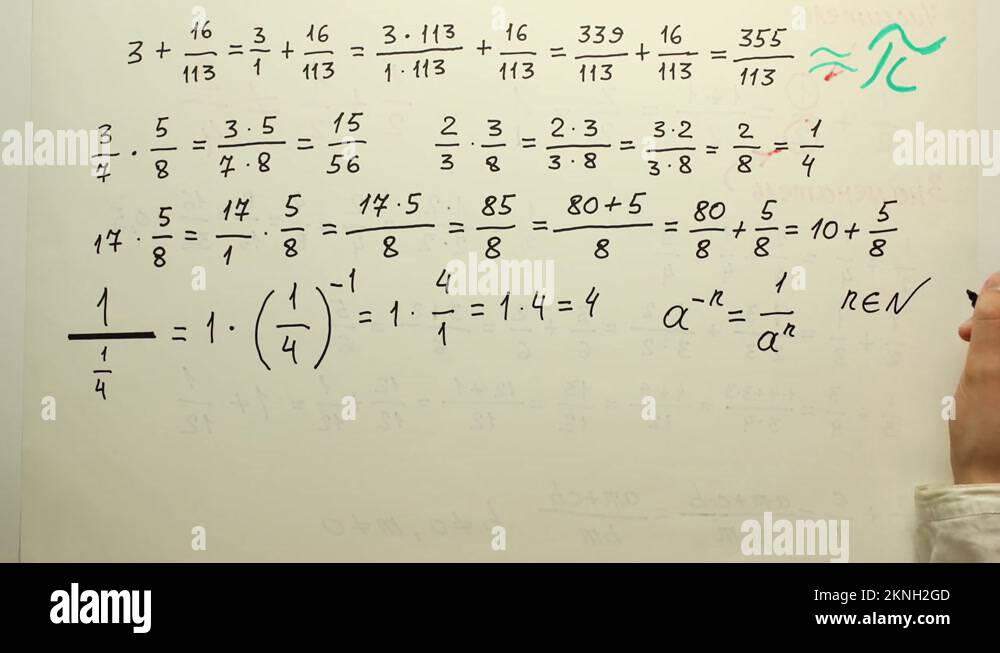 3 + 16/113 = 3/1 + 16/113 = 3·113/1·113 + 16/113 = 339/113 + 16/113 = 355/113 ≈ π
3/7 · 5/8 = 3·5/7·8 = 15/56    2/3 · 3/8 = 2·3/3·8 = 3·2/3·8 = 2/8 = 1/4
17 · 5/8 = 17/1 · 5/8 = 17·5/8 = 85/8 = 80+5/8 = 80/8 + 5/8 = 10 + 5/8
1/(1/4) = 1 · (1/4)^-1 = 1 · 4/1 = 1·4 = 4    a^-n = 1/a^n    n∈N
alamy
Image ID: 2KNH2GD
www.alamy.com